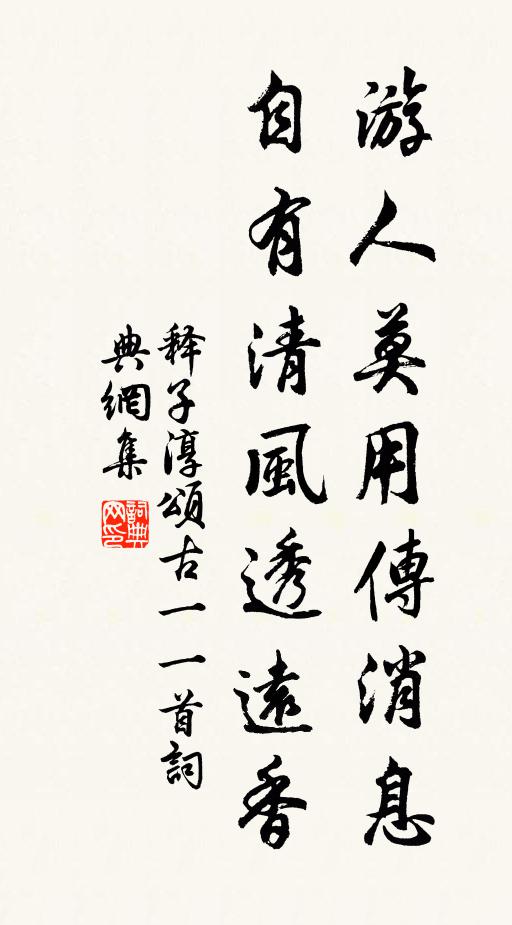 游人莫用傳消息
自有清風透遠香
释子淳頌古一一首詞
典網集
詞典
网印